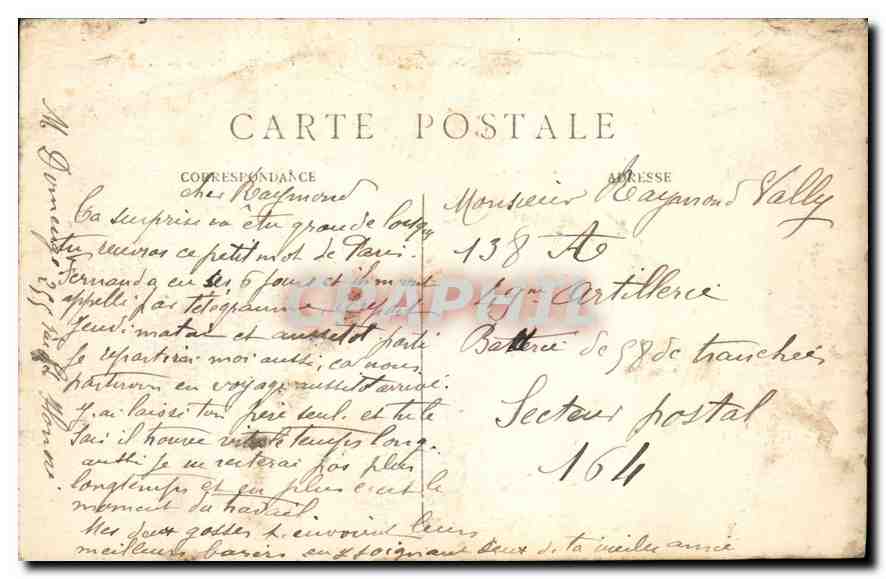 CARTE POSTALE
CORRESPONDANCE
ADRESSE
cher Raymond
Ta surprise va être grande lorsque
tu recevras ce petit mot de Paris.
Fernand a eu ses 6 jours et il m'ont
appelli par télégramme
Jeudi matin et aussitôt parti
Je repartirai moi aussi, ça nous
en voyage aussitôt arrivé.
J'ai laissé ton père seul. et tu le
sais il trouve vite le temps long.
aussi je ne resterai pas plus
longtemps et en plus c'est le
moment du travail
Mes deux gosses t'envoient leurs
meilleurs baisers en y joignant ceux de ta vieille amie
M. 255 rue St Honoré.
Monsieur Raymond Vally
138 A
19me Artillerie
Batterie de 58 de tranchées
Secteur postal
164
CPAPHIL